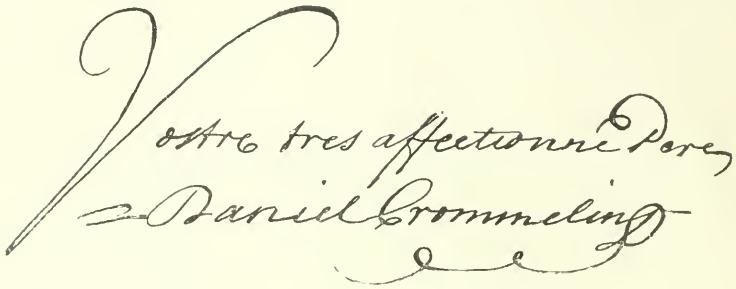 Vostre tres affectionné Pere
Daniel Crommeling